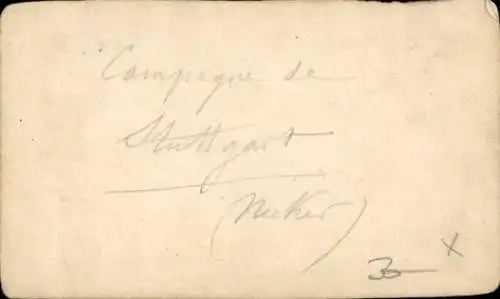 Campagne de
Stuttgart
(Necker)
3 x